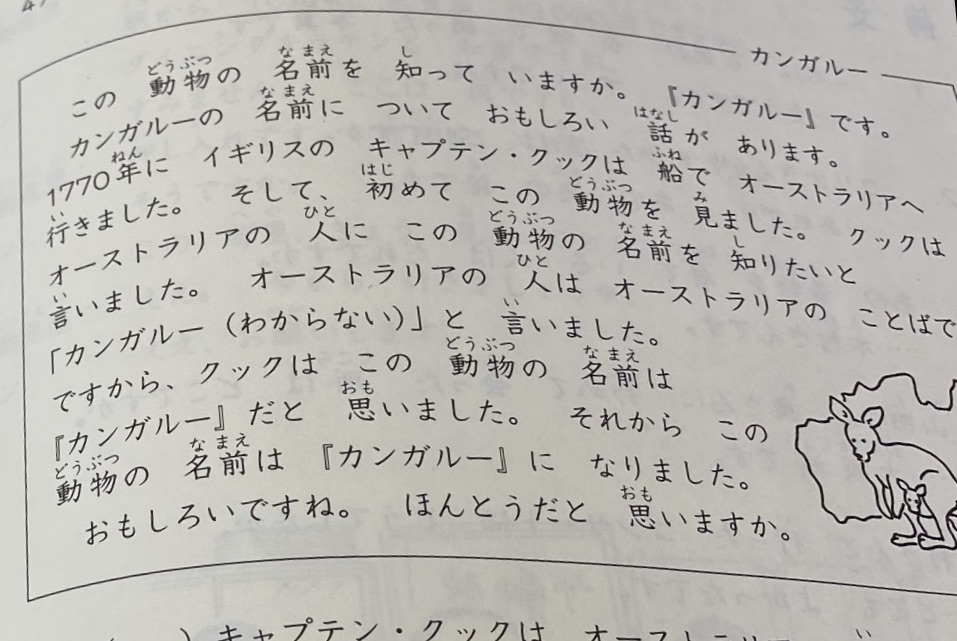 カンガルー
この 動物の 名前を 知って いますか。 『カンガルー』です。
カンガルーの 名前に ついて おもしろい 話が あります。
1770年に イギリスの キャプテン・クックは 船で オーストラリアへ
行きました。 そして、初めて この 動物を 見ました。 クックは
オーストラリアの 人に この 動物の 名前を 知りたいと
言いました。 オーストラリアの 人は オーストラリアの ことばで
「カンガルー（わからない）」と 言いました。
ですから、クックは この 動物の 名前は
『カンガルー』だと 思いました。 それから この
動物の 名前は 『カンガルー』に なりました。
おもしろいですね。 ほんとうだと 思いますか。
) キャプテン・クックは